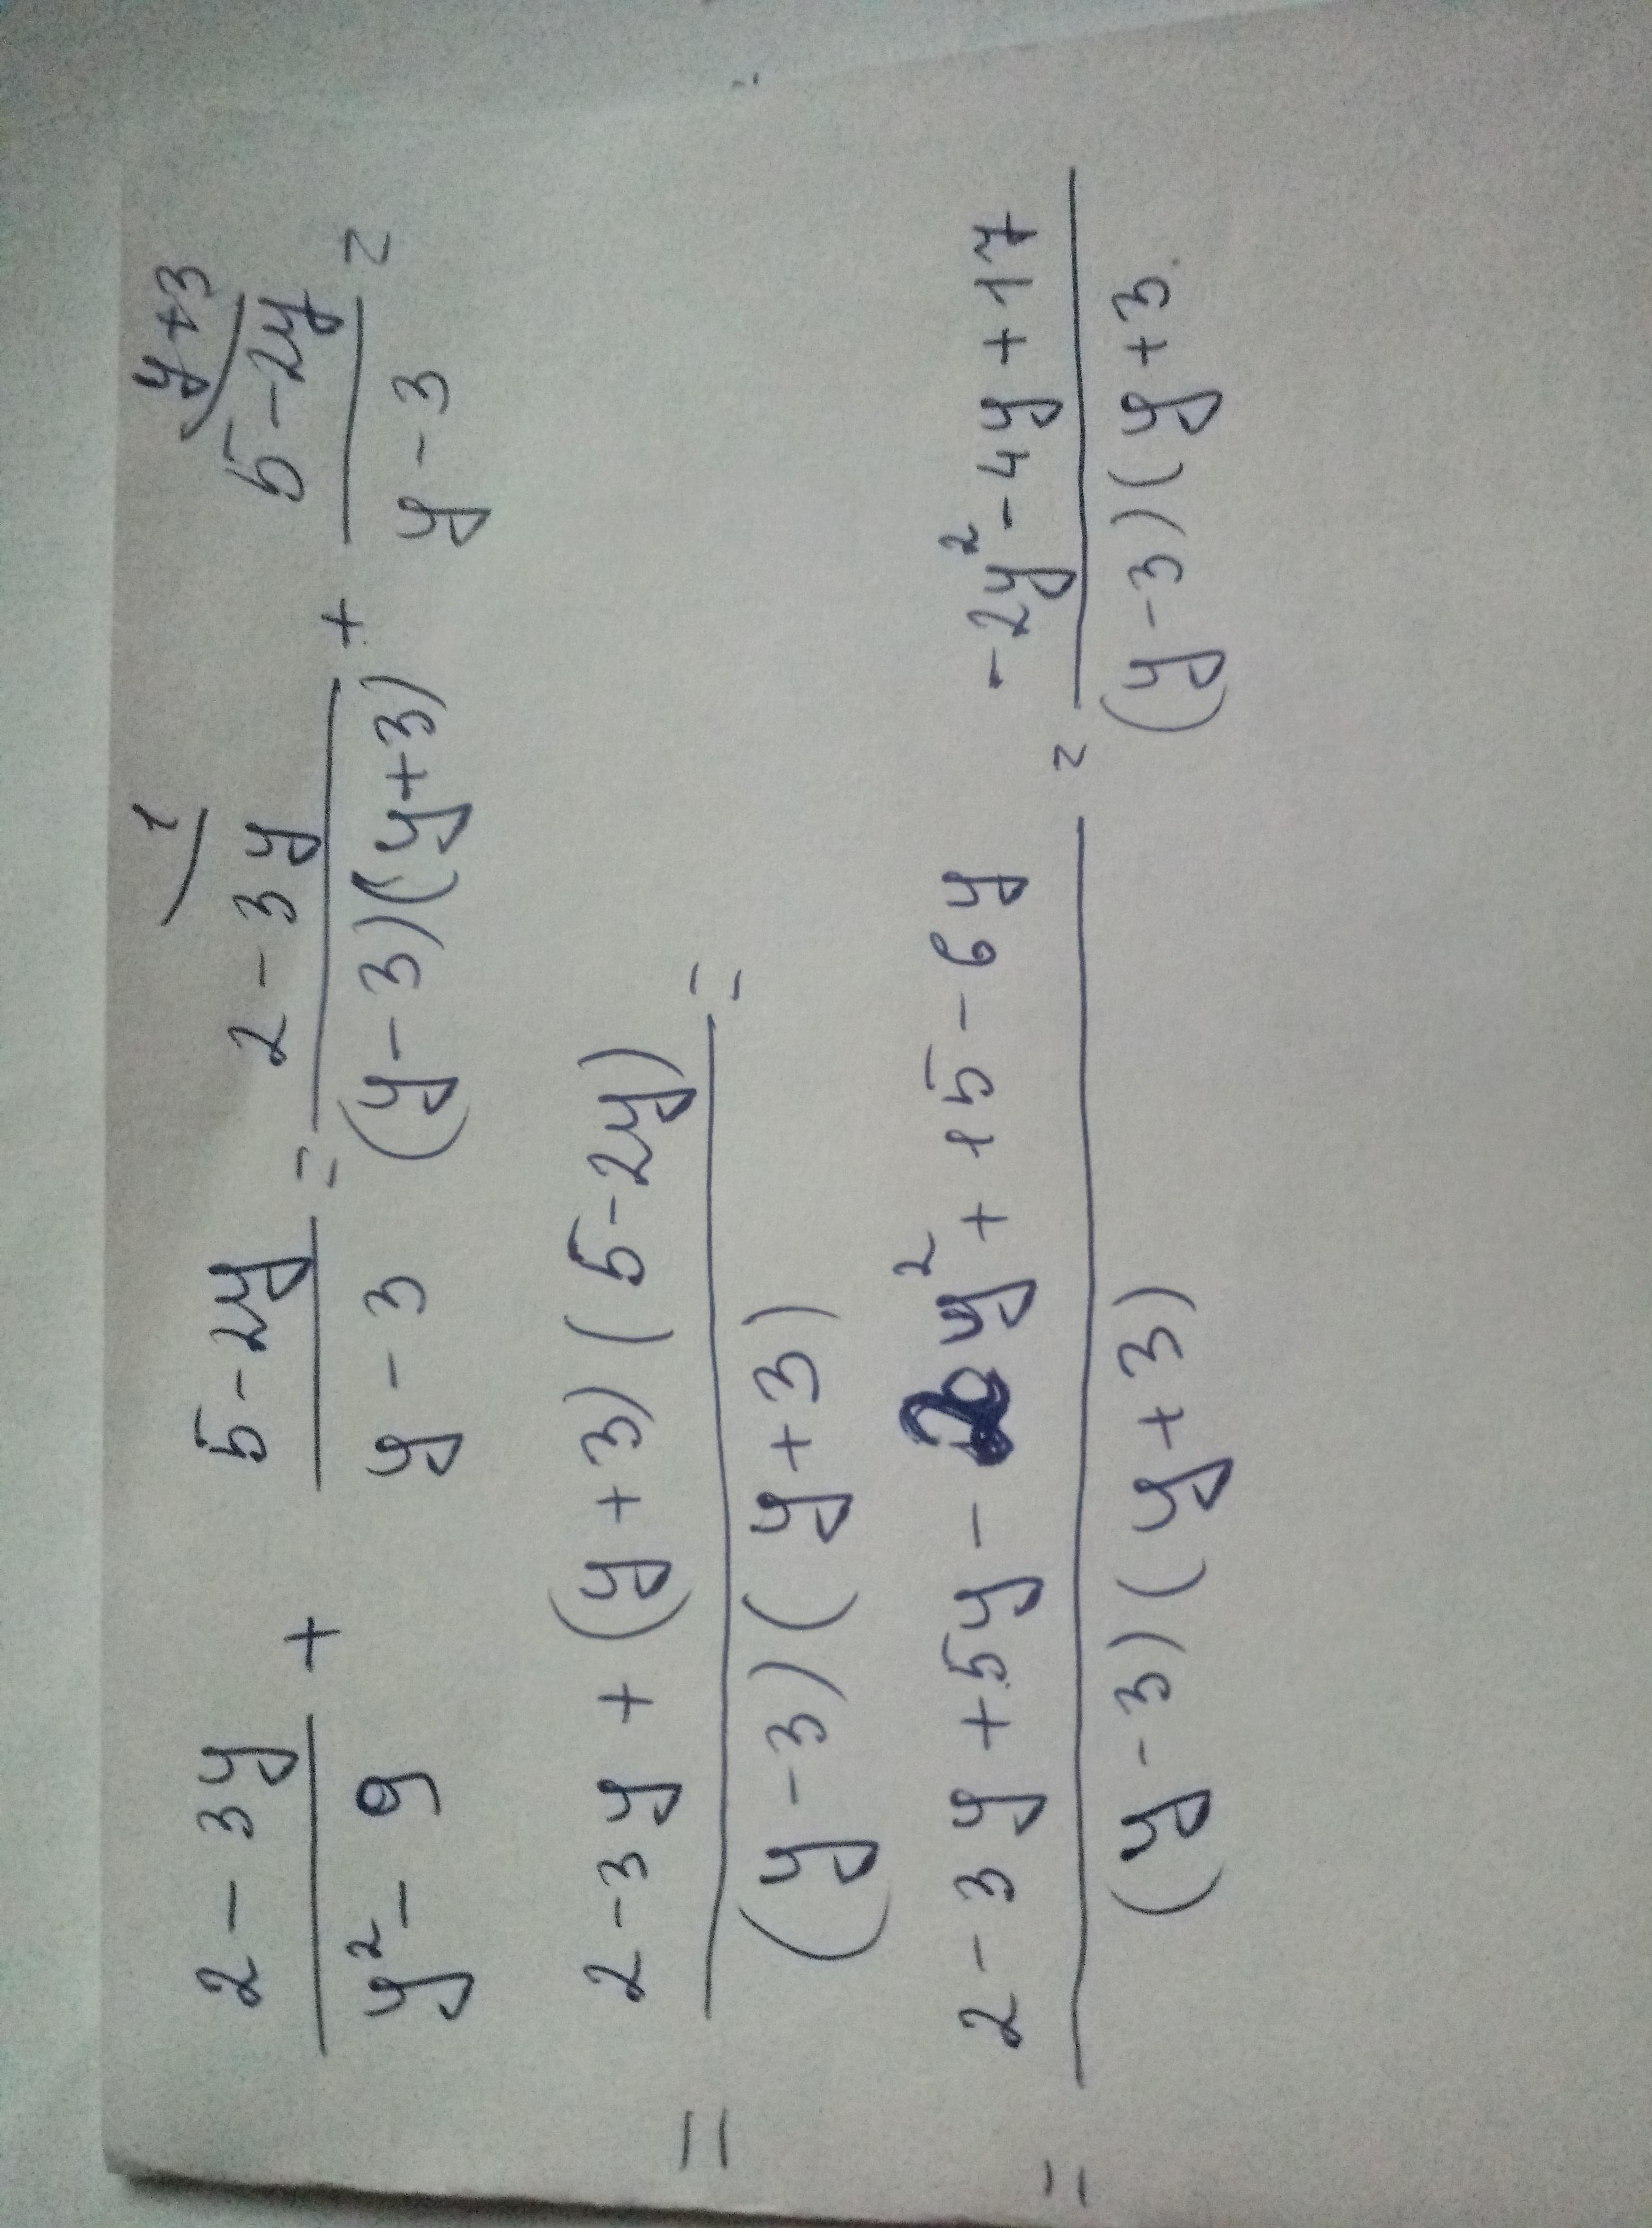 1 y+3
(2-3y)/(y²-9) + (5-2y)/(y-3) = (2-3y)/((y-3)(y+3)) + (5-2y)/(y-3) =
= (2-3y+(y+3)(5-2y))/((y-3)(y+3)) =
= (2-3y+5y-2y²+15-6y)/((y-3)(y+3)) = (-2y²-4y+17)/((y-3)(y+3.